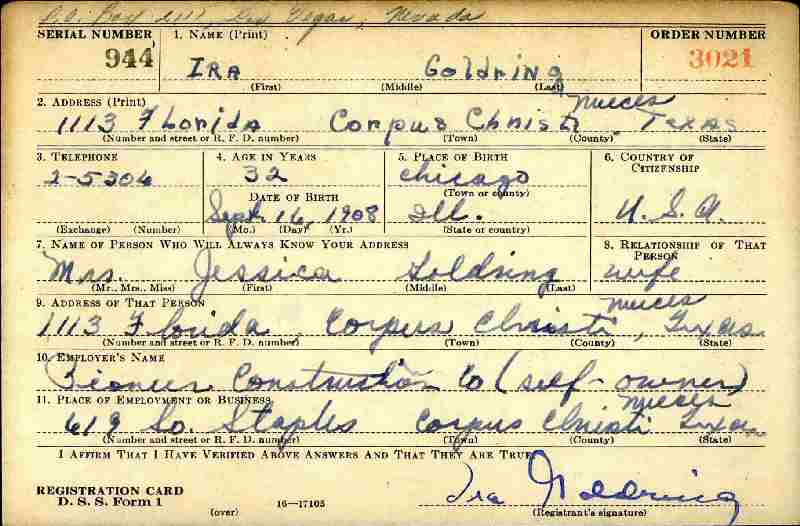 P.O. Box Las Vegas, Nevada
SERIAL NUMBER 1. NAME (Print) ORDER NUMBER
944 IRA Goldring 3021
(First) (Middle) (Last)
2. ADDRESS (Print) Nueces
1113 Florida Corpus Christi Texas
(Number and street or R. F. D. number) (Town) (County) (State)
3. TELEPHONE 4. AGE IN YEARS 5. PLACE OF BIRTH 6. COUNTRY OF CITIZENSHIP
2-5306 32 Chicago
DATE OF BIRTH (Town or county)
Sept. 16, 1908 Ill. U. S. A.
(Exchange) (Number) (Mo.) (Day) (Yr.) (State or country)
7. NAME OF PERSON WHO WILL ALWAYS KNOW YOUR ADDRESS 8. RELATIONSHIP OF THAT PERSON
Mrs. Jessica Goldring wife
(Mr., Mrs., Miss) (First) (Middle) (Last)
9. ADDRESS OF THAT PERSON Nueces
1113 Florida, Corpus Christi, Texas
(Number and street or R. F. D. number) (Town) (County) (State)
10. EMPLOYER'S NAME
Pioneer Construction Co (self-owner)
11. PLACE OF EMPLOYMENT OR BUSINESS Nueces
619 So. Staples Corpus Christi Texas
(Number and street or R. F. D. number) (Town) (County) (State)
I AFFIRM THAT I HAVE VERIFIED ABOVE ANSWERS AND THAT THEY ARE TRUE.
REGISTRATION CARD Ira Goldring
D. S. S. Form 1 (over) 16—17105 (Registrant's signature)